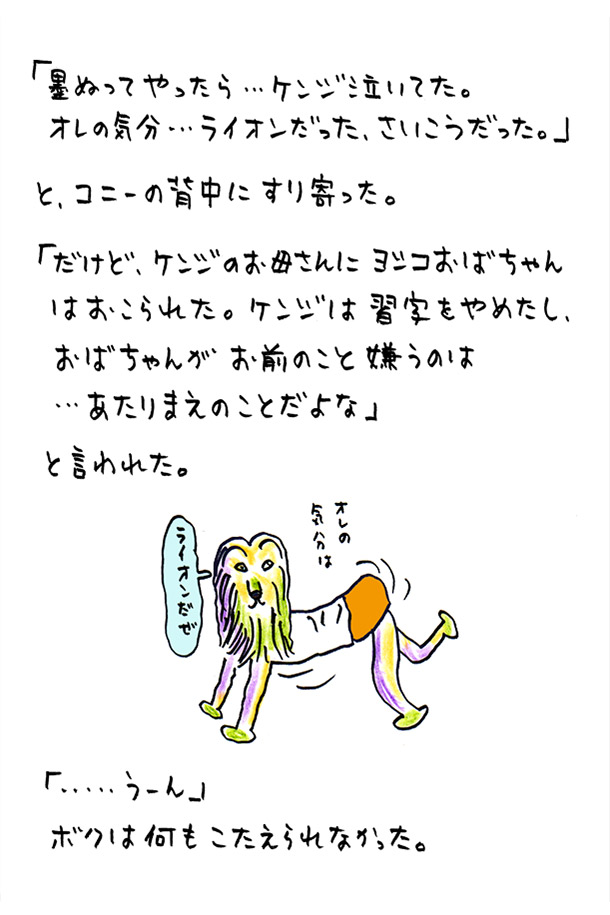 「墨ぬってやったら…ケンジ泣いてた。
オレの気分…ライオンだった、さいこうだった。」
と、コニーの背中にすり寄った。
「だけど、ケンジのお母さんにヨシコおばちゃん
はおこられた。ケンジは習字をやめたし、
おばちゃんがお前のこと嫌うのは
…あたりまえのことだよな」
と言われた。
オレの
気分は
ライオンだぜ
「……うーん」
ボクは何もこたえられなかった。